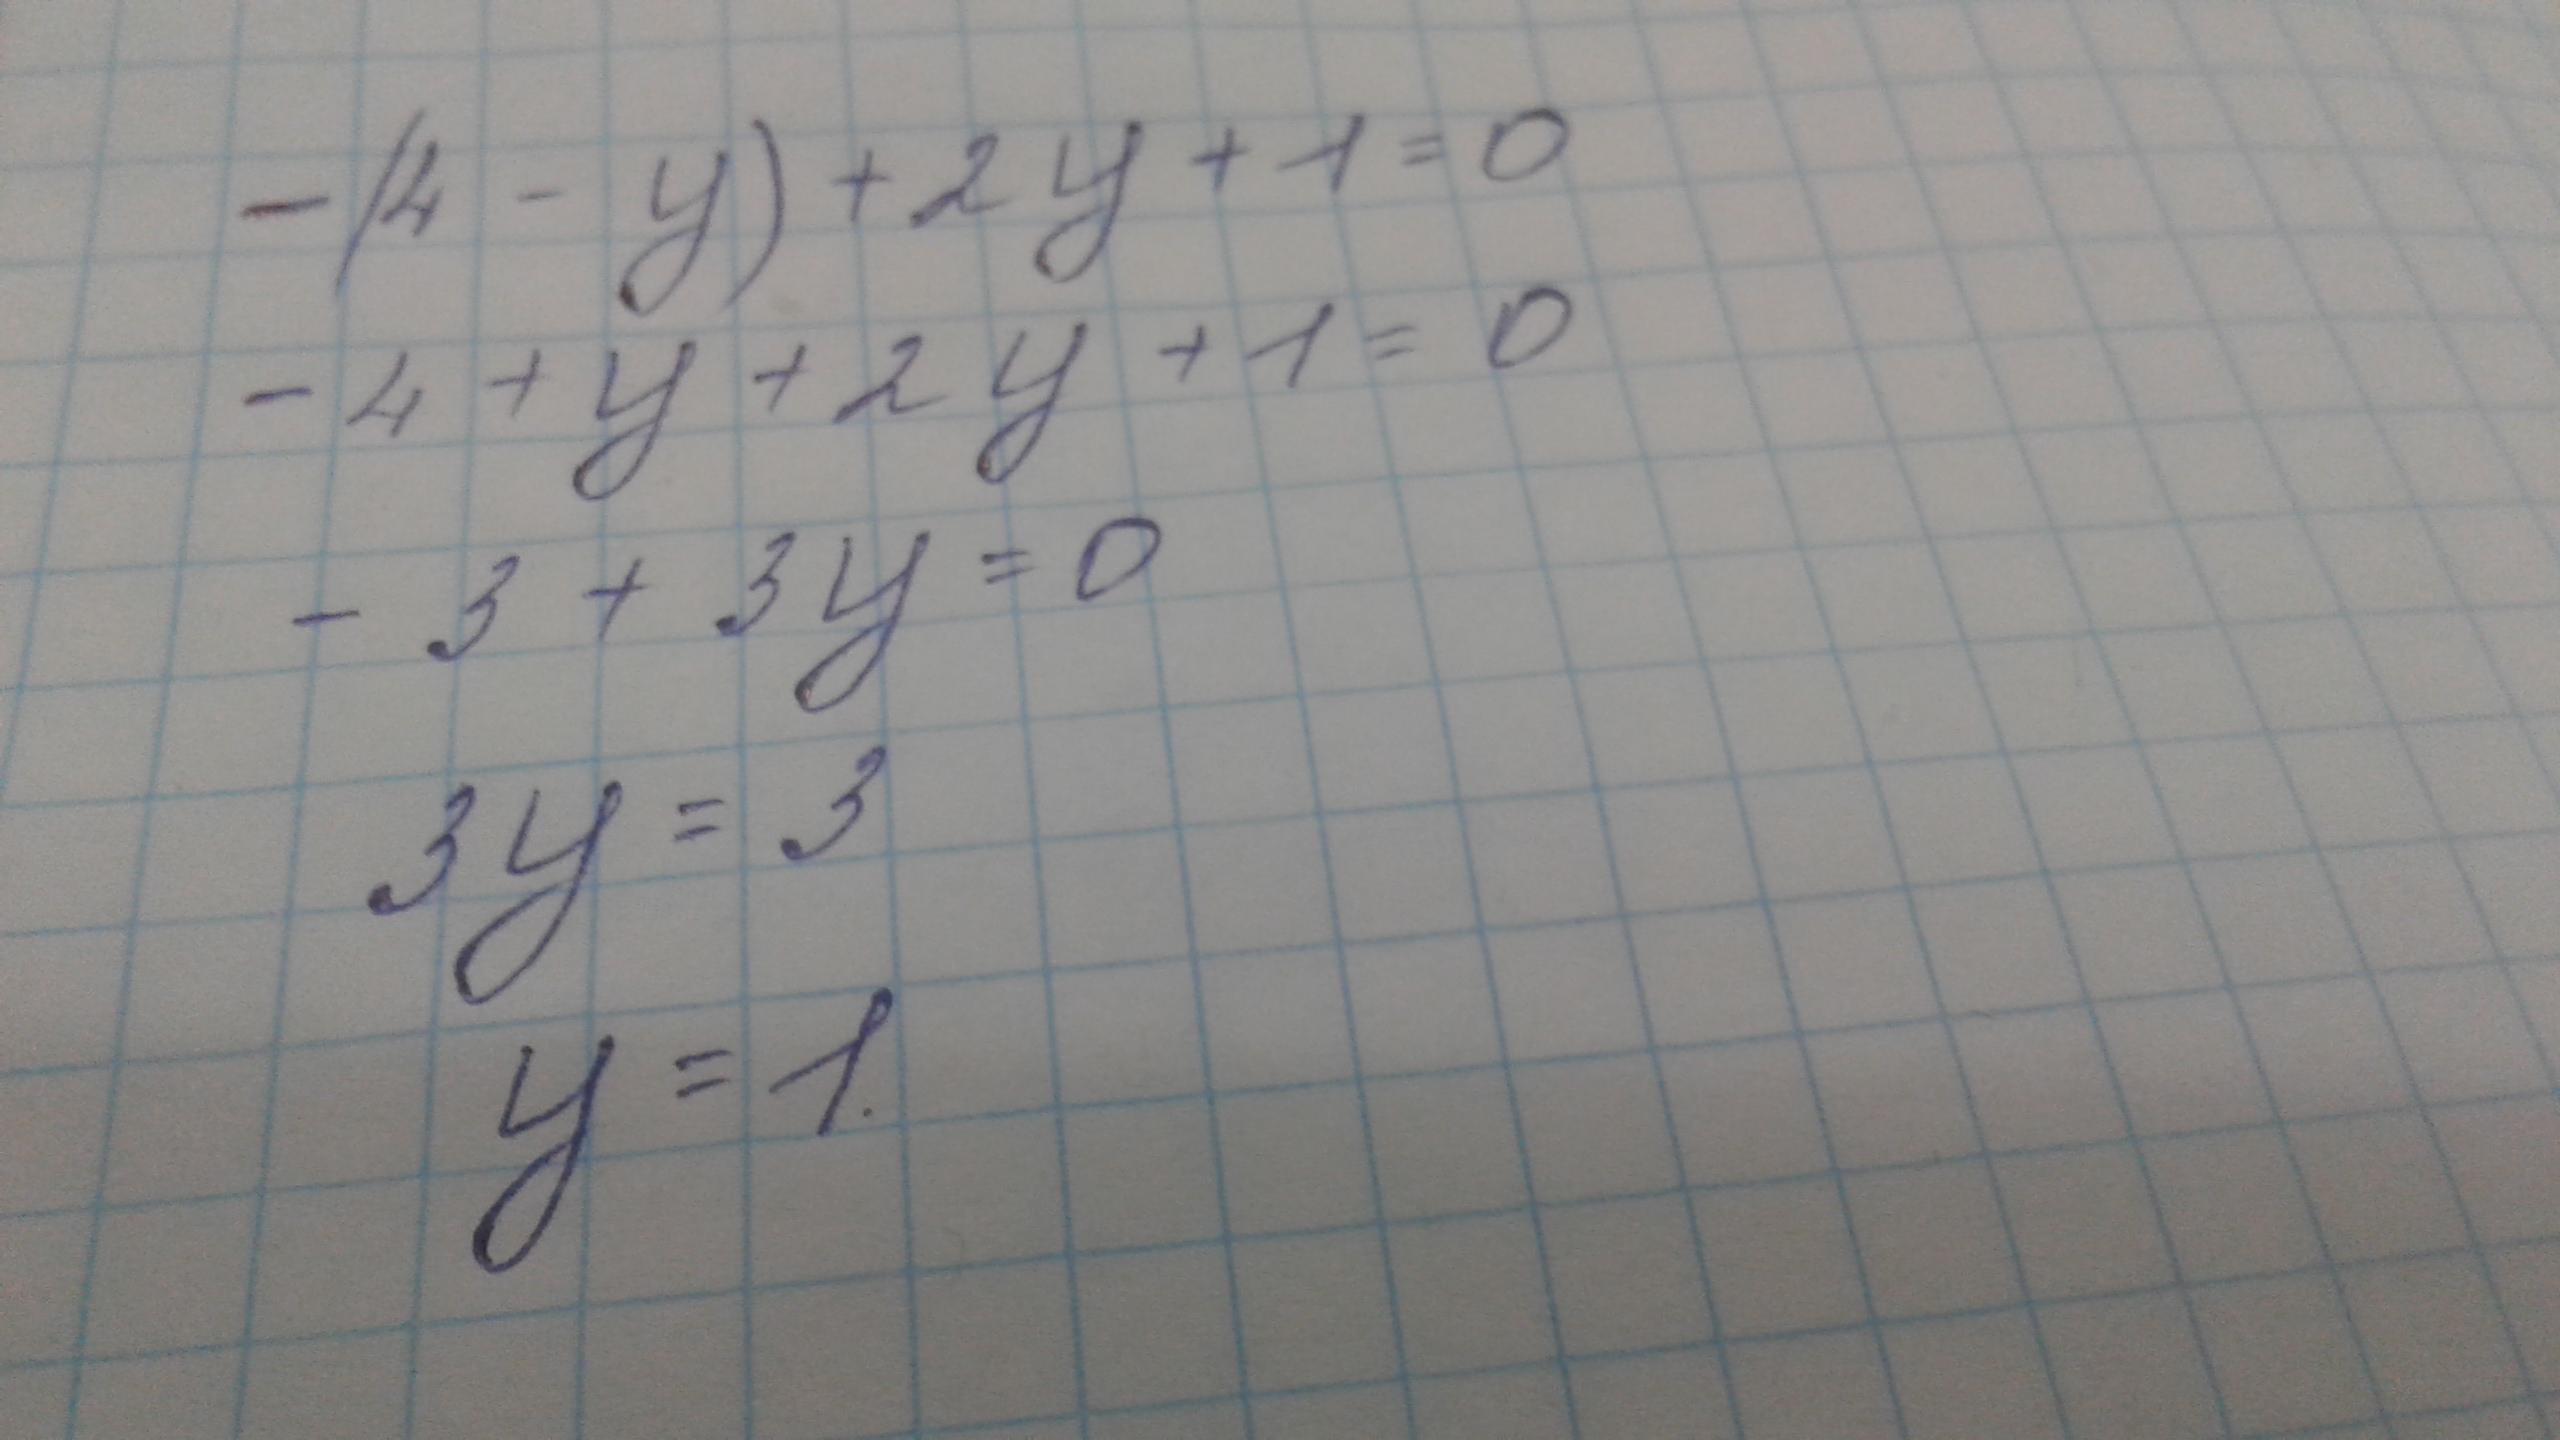 -(4 - y) + 2y + 1 = 0
-4 + y + 2y + 1 = 0
-3 + 3y = 0
3y = 3
y = 1.